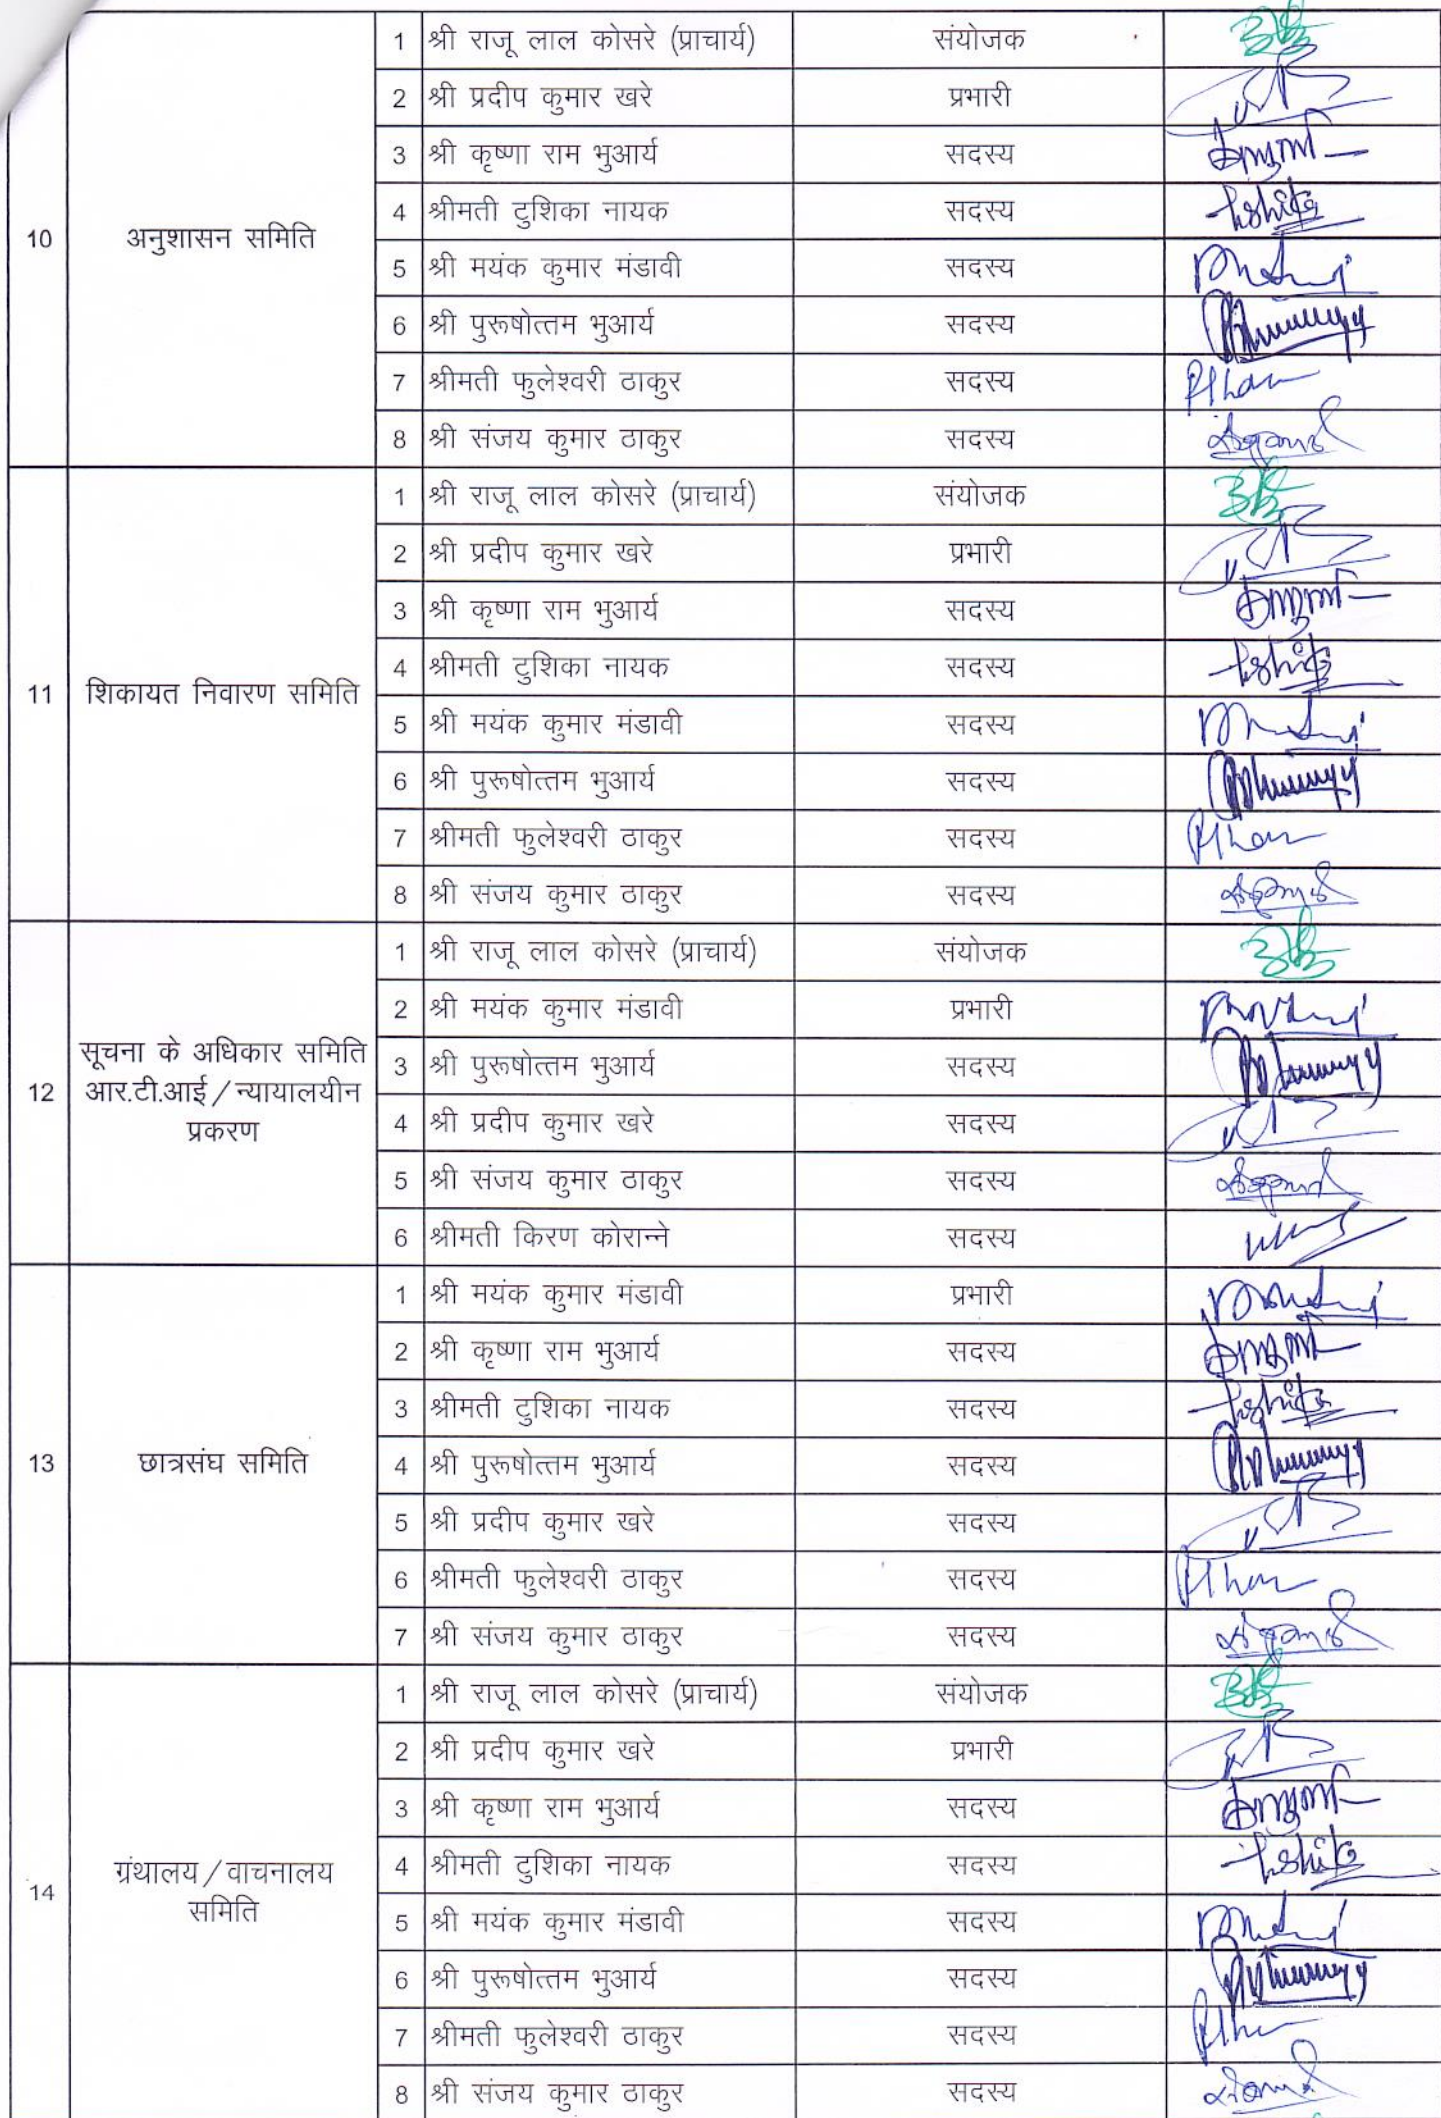 10
अनुशासन समिति
1 श्री राजू लाल कोसरे (प्राचार्य) संयोजक
2 श्री प्रदीप कुमार खरे प्रभारी
3 श्री कृष्णा राम भुआर्य सदस्य
4 श्रीमती टुशिका नायक सदस्य
5 श्री मयंक कुमार मंडावी सदस्य
6 श्री पुरूषोत्तम भुआर्य सदस्य
7 श्रीमती फुलेश्वरी ठाकुर सदस्य
8 श्री संजय कुमार ठाकुर सदस्य
11
शिकायत निवारण समिति
1 श्री राजू लाल कोसरे (प्राचार्य) संयोजक
2 श्री प्रदीप कुमार खरे प्रभारी
3 श्री कृष्णा राम भुआर्य सदस्य
4 श्रीमती टुशिका नायक सदस्य
5 श्री मयंक कुमार मंडावी सदस्य
6 श्री पुरूषोत्तम भुआर्य सदस्य
7 श्रीमती फुलेश्वरी ठाकुर सदस्य
8 श्री संजय कुमार ठाकुर सदस्य
12
सूचना के अधिकार समिति
आर.टी.आई/न्यायालयीन
प्रकरण
1 श्री राजू लाल कोसरे (प्राचार्य) संयोजक
2 श्री मयंक कुमार मंडावी प्रभारी
3 श्री पुरूषोत्तम भुआर्य सदस्य
4 श्री प्रदीप कुमार खरे सदस्य
5 श्री संजय कुमार ठाकुर सदस्य
6 श्रीमती किरण कोरान्ने सदस्य
13
छात्रसंघ समिति
1 श्री मयंक कुमार मंडावी प्रभारी
2 श्री कृष्णा राम भुआर्य सदस्य
3 श्रीमती टुशिका नायक सदस्य
4 श्री पुरूषोत्तम भुआर्य सदस्य
5 श्री प्रदीप कुमार खरे सदस्य
6 श्रीमती फुलेश्वरी ठाकुर सदस्य
7 श्री संजय कुमार ठाकुर सदस्य
14
ग्रंथालय/वाचनालय
समिति
1 श्री राजू लाल कोसरे (प्राचार्य) संयोजक
2 श्री प्रदीप कुमार खरे प्रभारी
3 श्री कृष्णा राम भुआर्य सदस्य
4 श्रीमती टुशिका नायक सदस्य
5 श्री मयंक कुमार मंडावी सदस्य
6 श्री पुरूषोत्तम भुआर्य सदस्य
7 श्रीमती फुलेश्वरी ठाकुर सदस्य
8 श्री संजय कुमार ठाकुर सदस्य